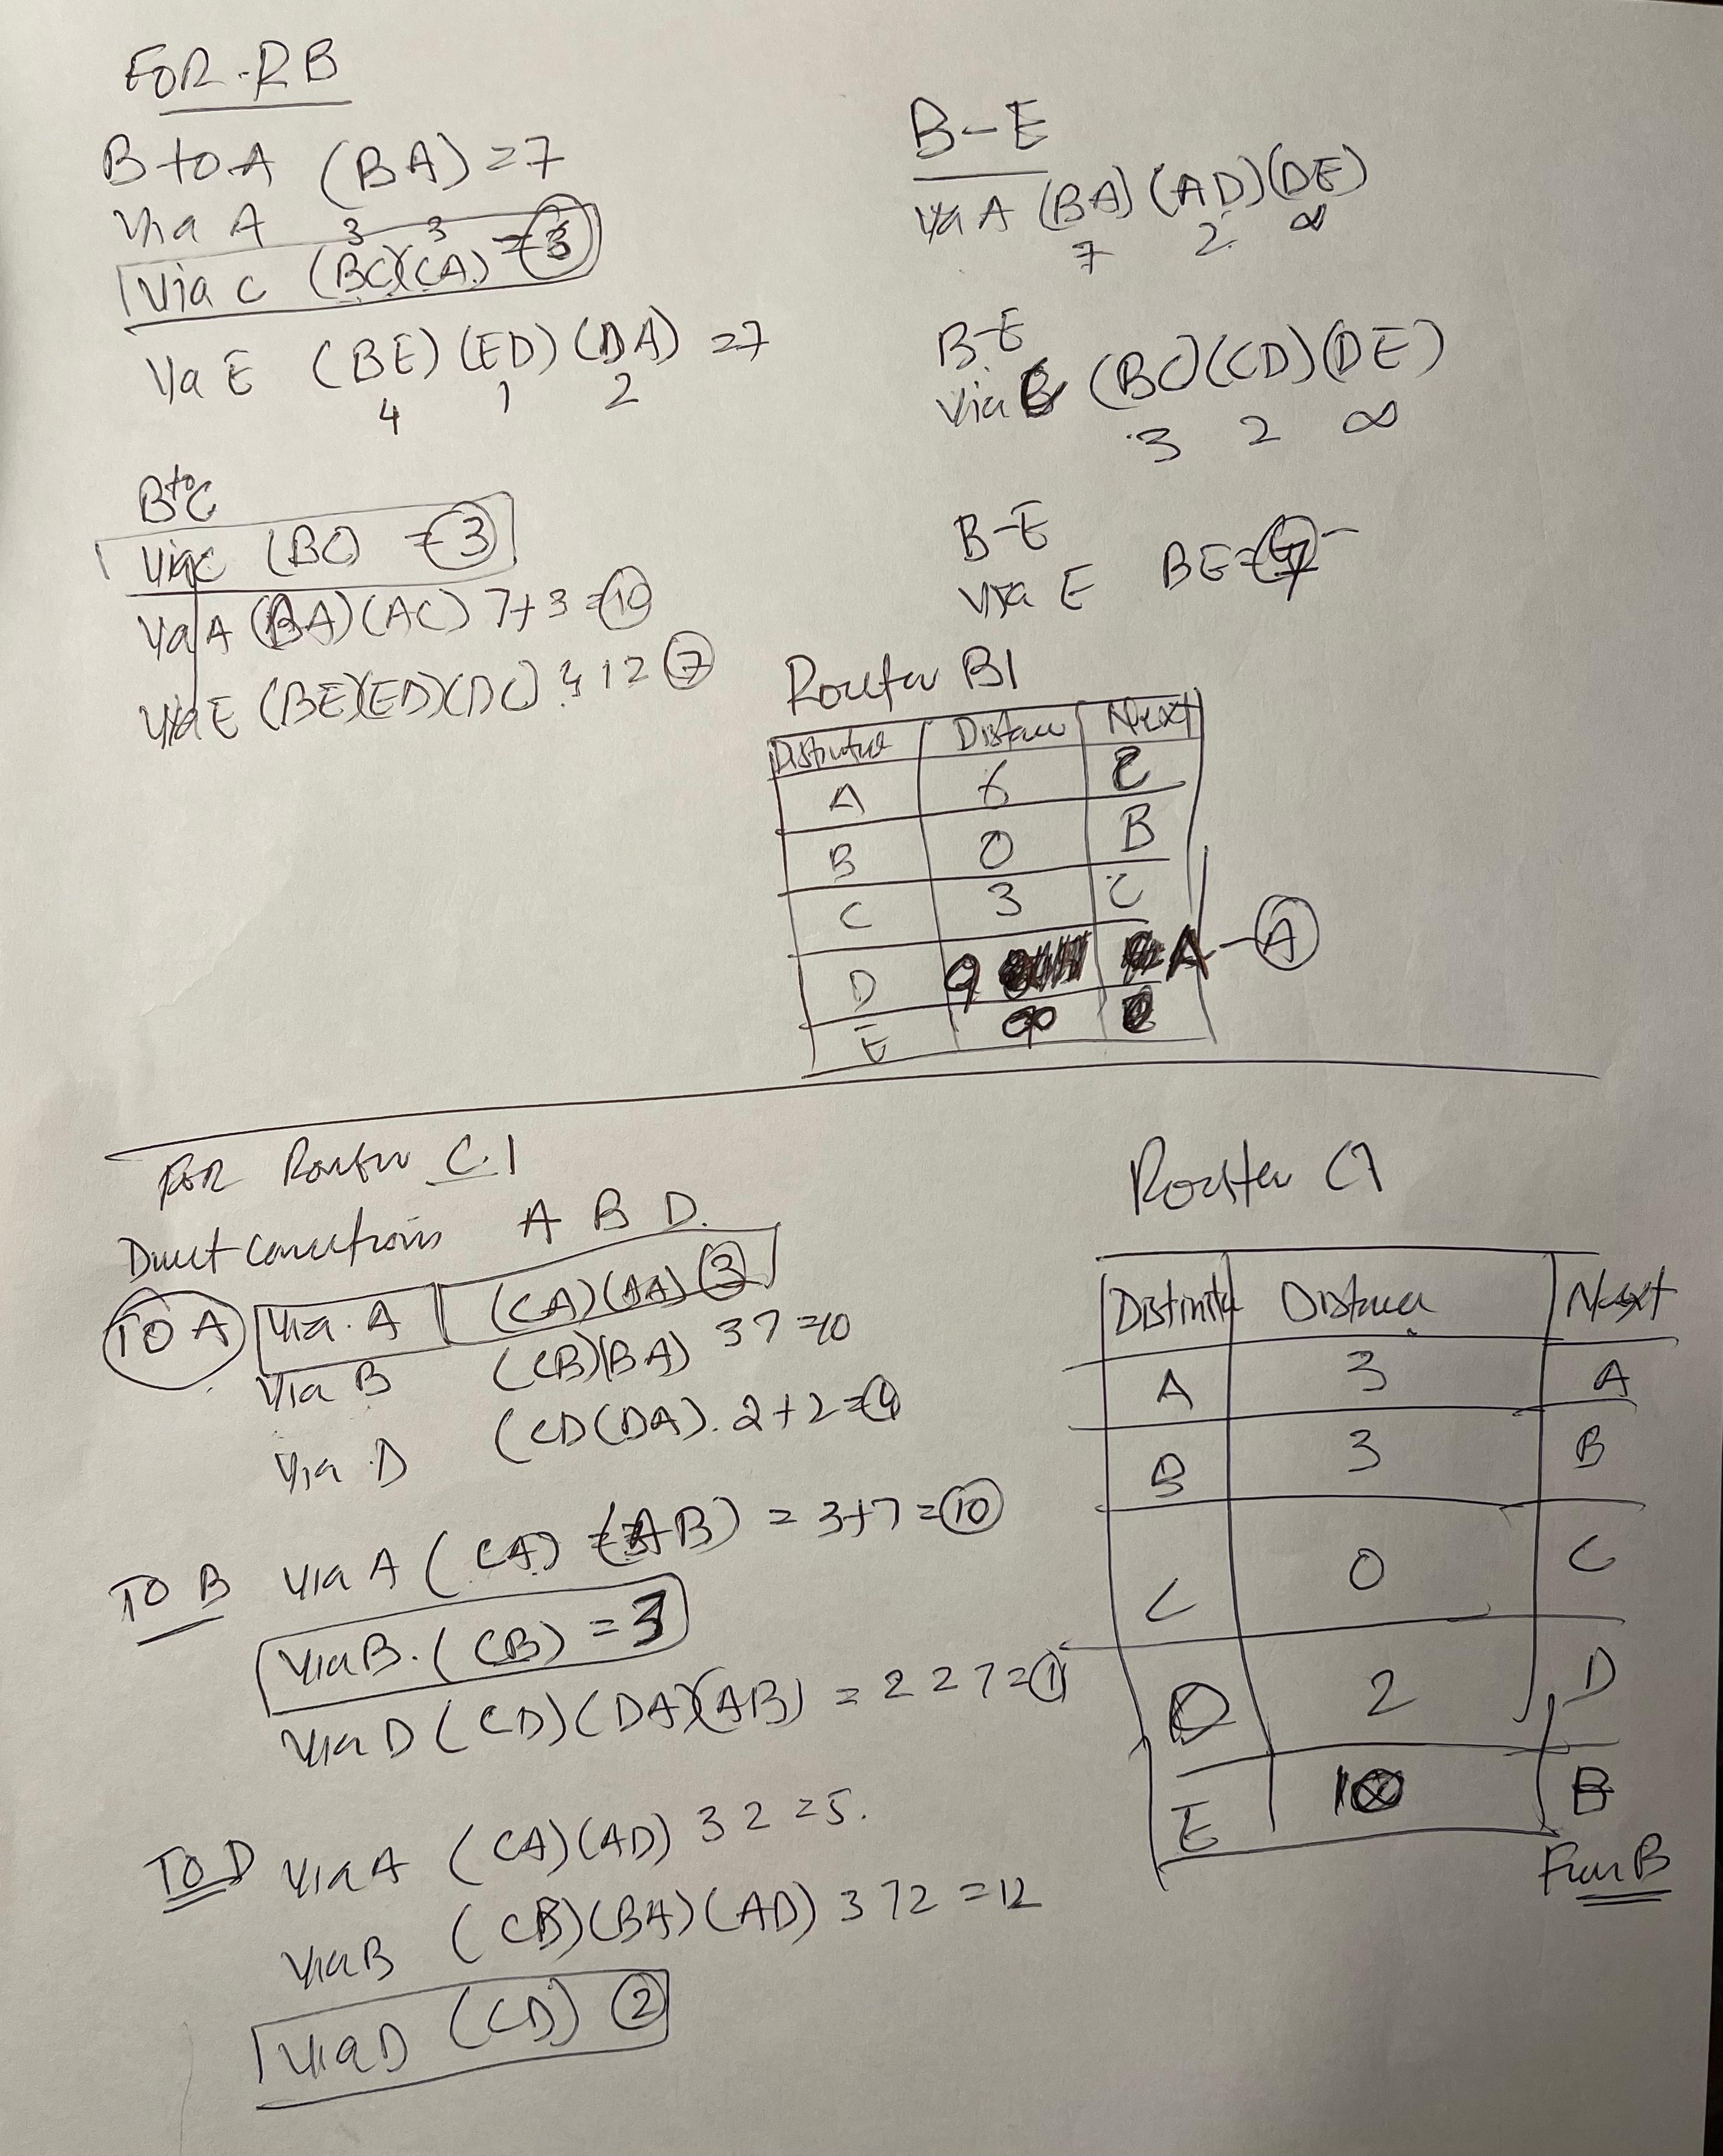 FOR-RB
B to A (BA) = 7
Via A
3 3
Via C (BC)(CA) = 3
Via E (BE) (ED) (DA) = 7
4 1 2
B to C
Via C (BC) = 3
Via A (BA) (AC) 7+3 = 10
Via E (BE)(ED)(DC) 4 1 2 7
B-E
Via A (BA) (AD)(DE)
7 2 ∞
B-E
Via (BC)(CD)(DE)
3 2 ∞
B-E
Via E BE =
Router B1
Distance Next
A 6 C
B 0 B
C 3 C
D 9 A - A
E
FOR Router C1
Direct Connections A B D.
TO A Via A (CA)(AA) 3
Via B (CB)(BA) 3 7 = 10
Via D (CD(DA). 2+2 = 4
TO B Via A (CA) (AB) = 3+7 = 10
Via B. (CB) = 3
Via D (CD)(DA)(AB) = 2 2 7 = 11
TO D Via A (CA)(AD) 3 2 = 5.
Via B (CB)(BA)(AD) 3 7 2 = 12
Via D (CD) 2
Router C1
Distance Next
A 3 A
B 3 B
C 0 C
D 2 D
E B
From B